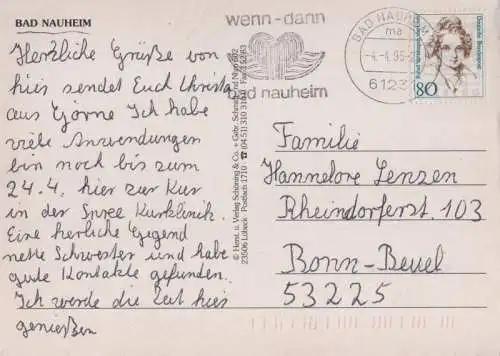 BAD NAUHEIM
Herzliche Grüße von
hier sendet Euch Christa
aus Ich habe
viele Anwendungen
bin noch bis zum
24.4. hier zur Kur
in der Spree Kurklinik.
Eine herliche Gegend
nette Schwester und habe
gute Kontakte gefunden.
Ich werde die Zeit hier
genießen
wenn-dann
bad nauheim
BAD NAUHEIM
ma
-4.-4.95-
6123
Deutsche Bundespost
80
© Herst. u. Verlag Schöning & Co. + Gebr. Schmidt
23506 Lübeck · Postfach 1710 · ☎ (0451) 310 310
Familie
Hannelore Lenzen
Rheindorferst. 103
Bonn-Beuel
53225